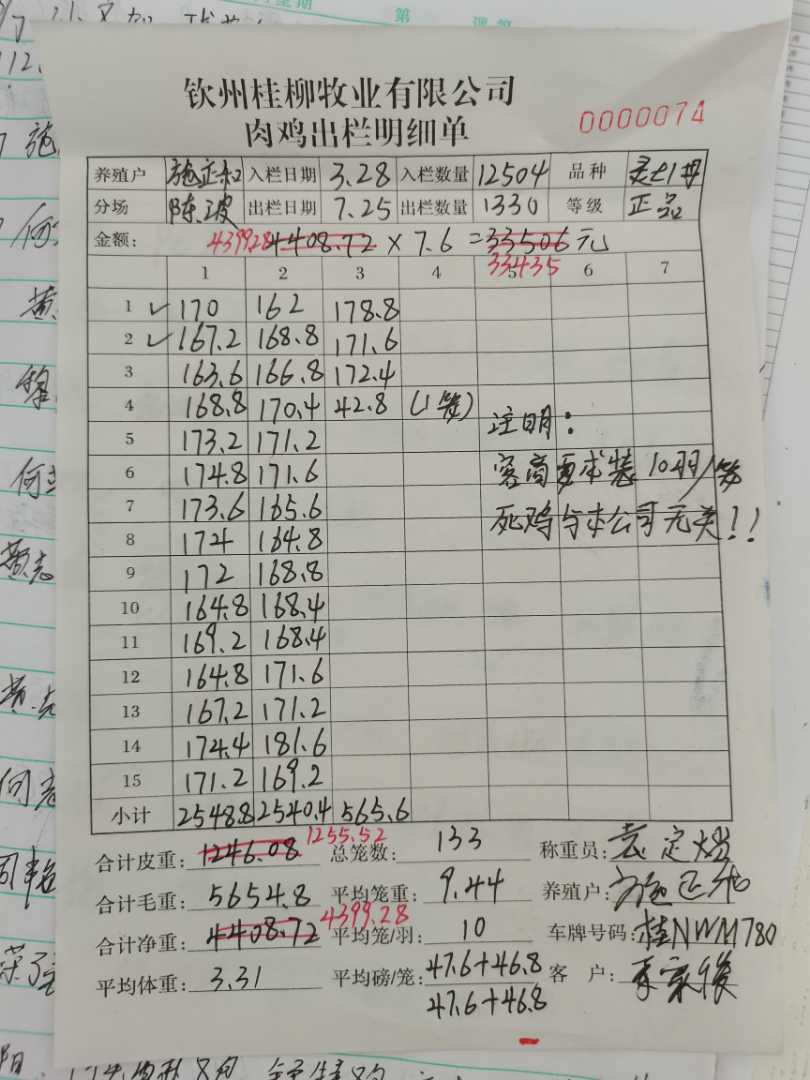 钦州桂柳牧业有限公司
肉鸡出栏明细单
0000074
养殖户 施正和 入栏日期 3.28 入栏数量 12504 品种
分场 陈波 出栏日期 7.25 出栏数量 1330 等级 正品
金额: 439928 4408.72 × 7.6 = 33506元
33435
1 2 3 4 5 6 7
1 ✓170 162 178.8
2 ✓167.2 168.8 171.6
3 163.6 166.8 172.4
4 168.8 170.4 42.8 (1笼) 注明:
5 173.2 171.2
6 174.8 171.6 客商要求装10羽/笼
7 173.6 165.6 死鸡与本公司无关!!
8 174 164.8
9 172 168.8
10 164.8 168.4
11 169.2 168.4
12 164.8 171.6
13 167.2 171.2
14 174.4 181.6
15 171.2 169.2
小计 2548.8 2540.4 565.6
1255.52
合计皮重: 1246.08 总笼数: 133 称重员:
合计毛重: 5654.8 平均笼重: 9.44 养殖户:
4399.28
合计净重: 4408.72 平均笼/羽: 10 车牌号码: 桂NWM780
平均体重: 3.31 平均磅/笼: 47.6+46.8 客 户:
47.6+46.8